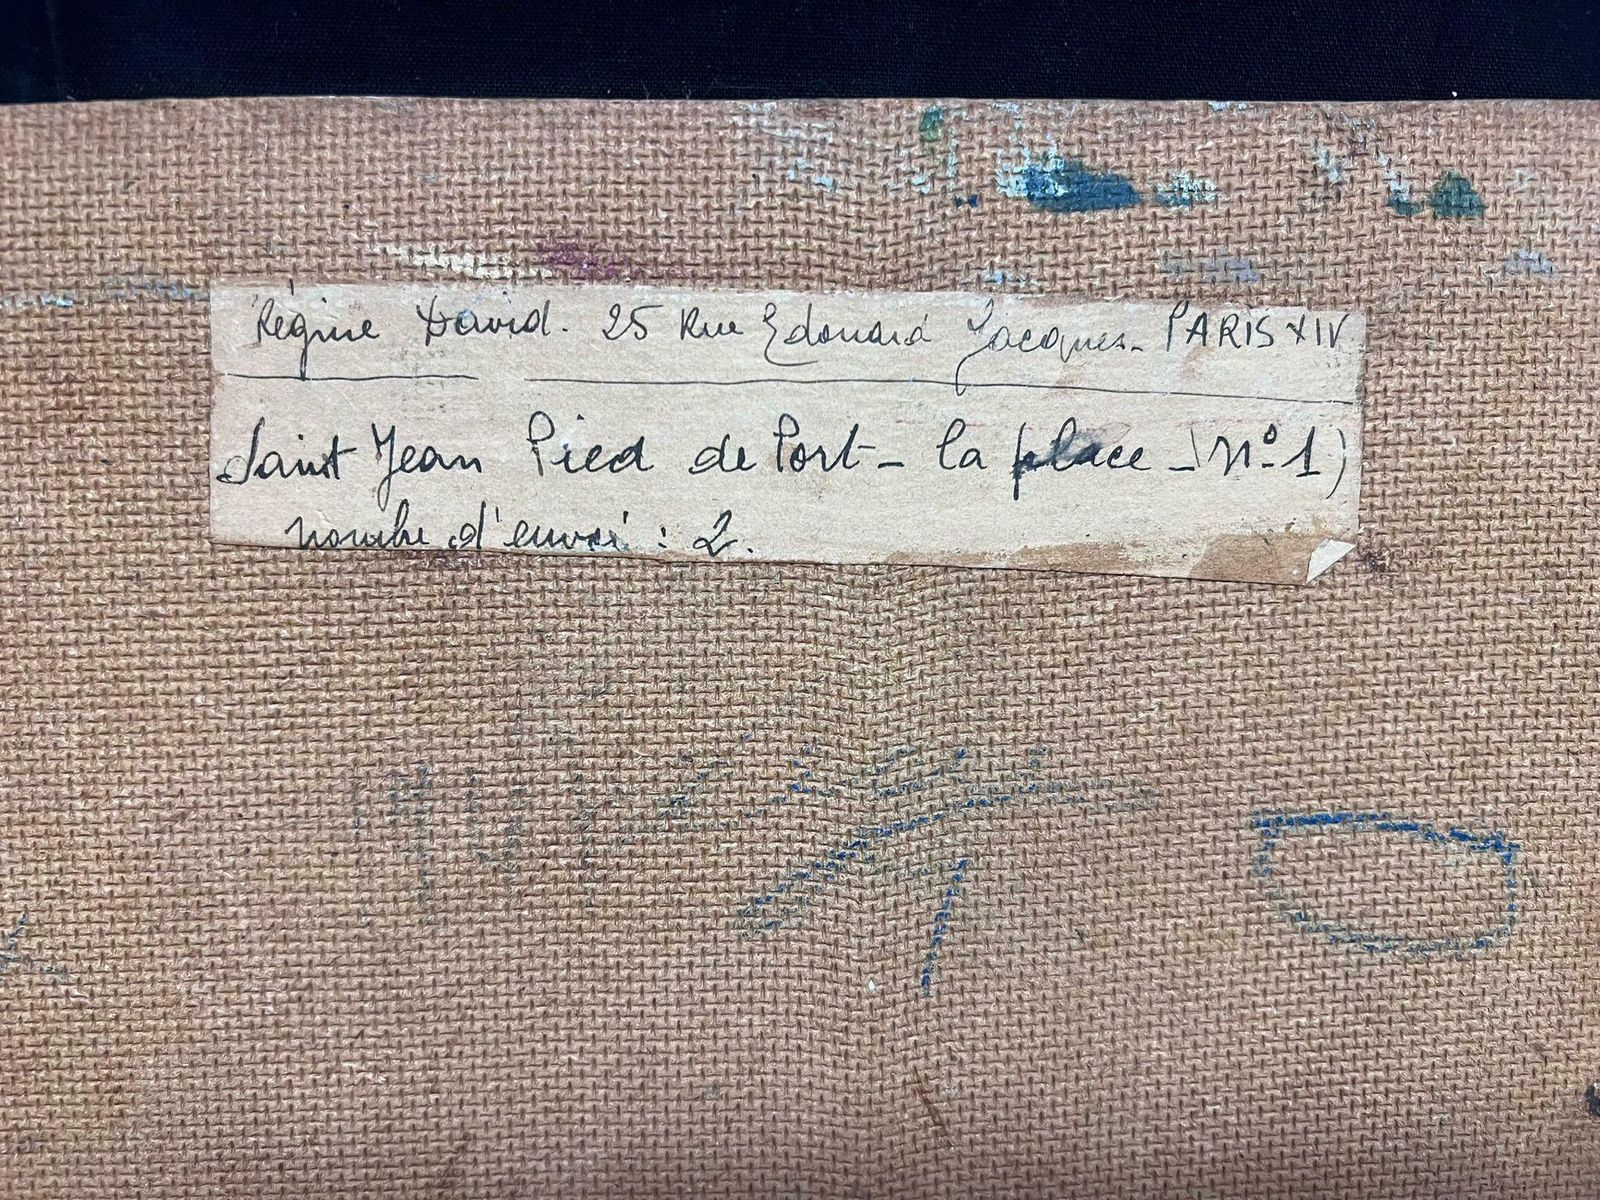 Régine David. 25 Rue Edouard Jacques - PARIS XIV
Saint Jean Pied de Port - la place - (n° 1)
nombre d'envoi : 2.